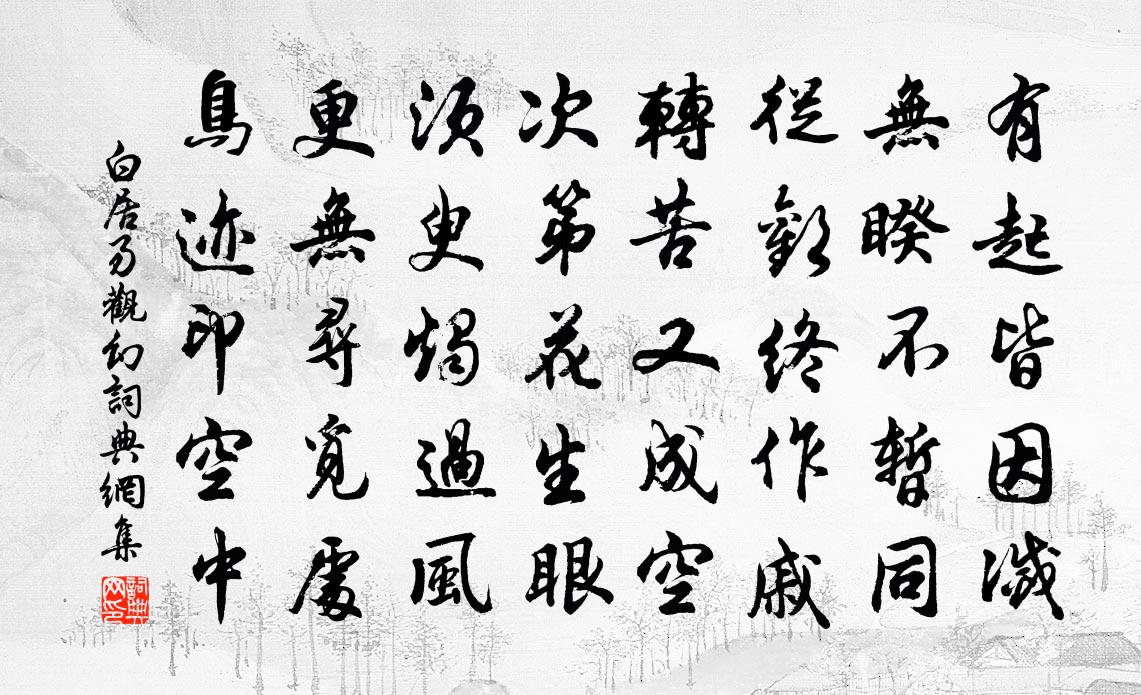 有起皆因滅
無睽不暫同
從歡終作戚
轉苦又成空
次第花生眼
須臾燭過風
更無尋覓處
鳥迹印空中
白居易觀幻詞典網集
詞典网印